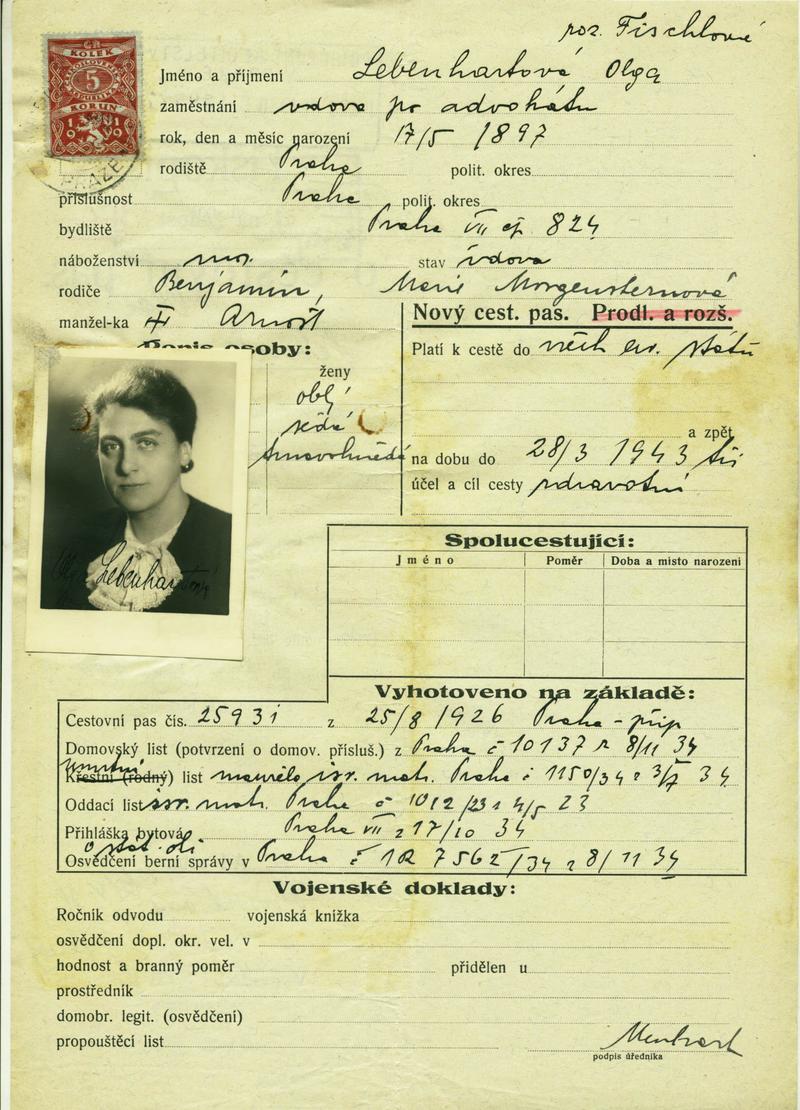 roz. Fischlová
KOLEK
5
KORUN
PRAZE
Jméno a příjmení Lebenhartová Olga
zaměstnání vdova po advokátu
rok, den a měsíc narození 17/5 1897
rodiště Praha polit. okres
příslušnost Praha polit. okres
bydliště Praha VII čp 824
náboženství stav vdova
rodiče Benjamin, Marie Morgensternová
manžel-ka Arnošt
Nový cest. pas. Prodl. a rozš.
Popis osoby:
Platí k cestě do všech ev. států
ženy
oblý
šedé
tmavohnědé
a zpět
na dobu do 28/3 1943 tři
účel a cíl cesty zdravotní
Olga Lebenhartová
Spolucestující:
Jméno Poměr Doba a místo narození
Vyhotoveno na základě:
Cestovní pas čís. 25931 z 25/8 1926 Praha - přip
Domovský list (potvrzení o domov. přísluš.) z Praha č 10137 z 8/11 34
úmrtní
Křestní (rodný) list manžela isr. matr. Praha č 1150/34 z 34
Oddací list isr. matr. Praha č 1012/23 z 4/5 23
Přihláška bytová Praha VII z 17/10 34
o stát. obč.
Osvědčení berní správy v Praha č 1R 7562/34 z 8/11 34
Vojenské doklady:
Ročník odvodu vojenská knížka
osvědčení dopl. okr. vel. v
hodnost a branný poměr přidělen u
prostředník
domobr. legit. (osvědčení)
propouštěcí list
podpis úředníka